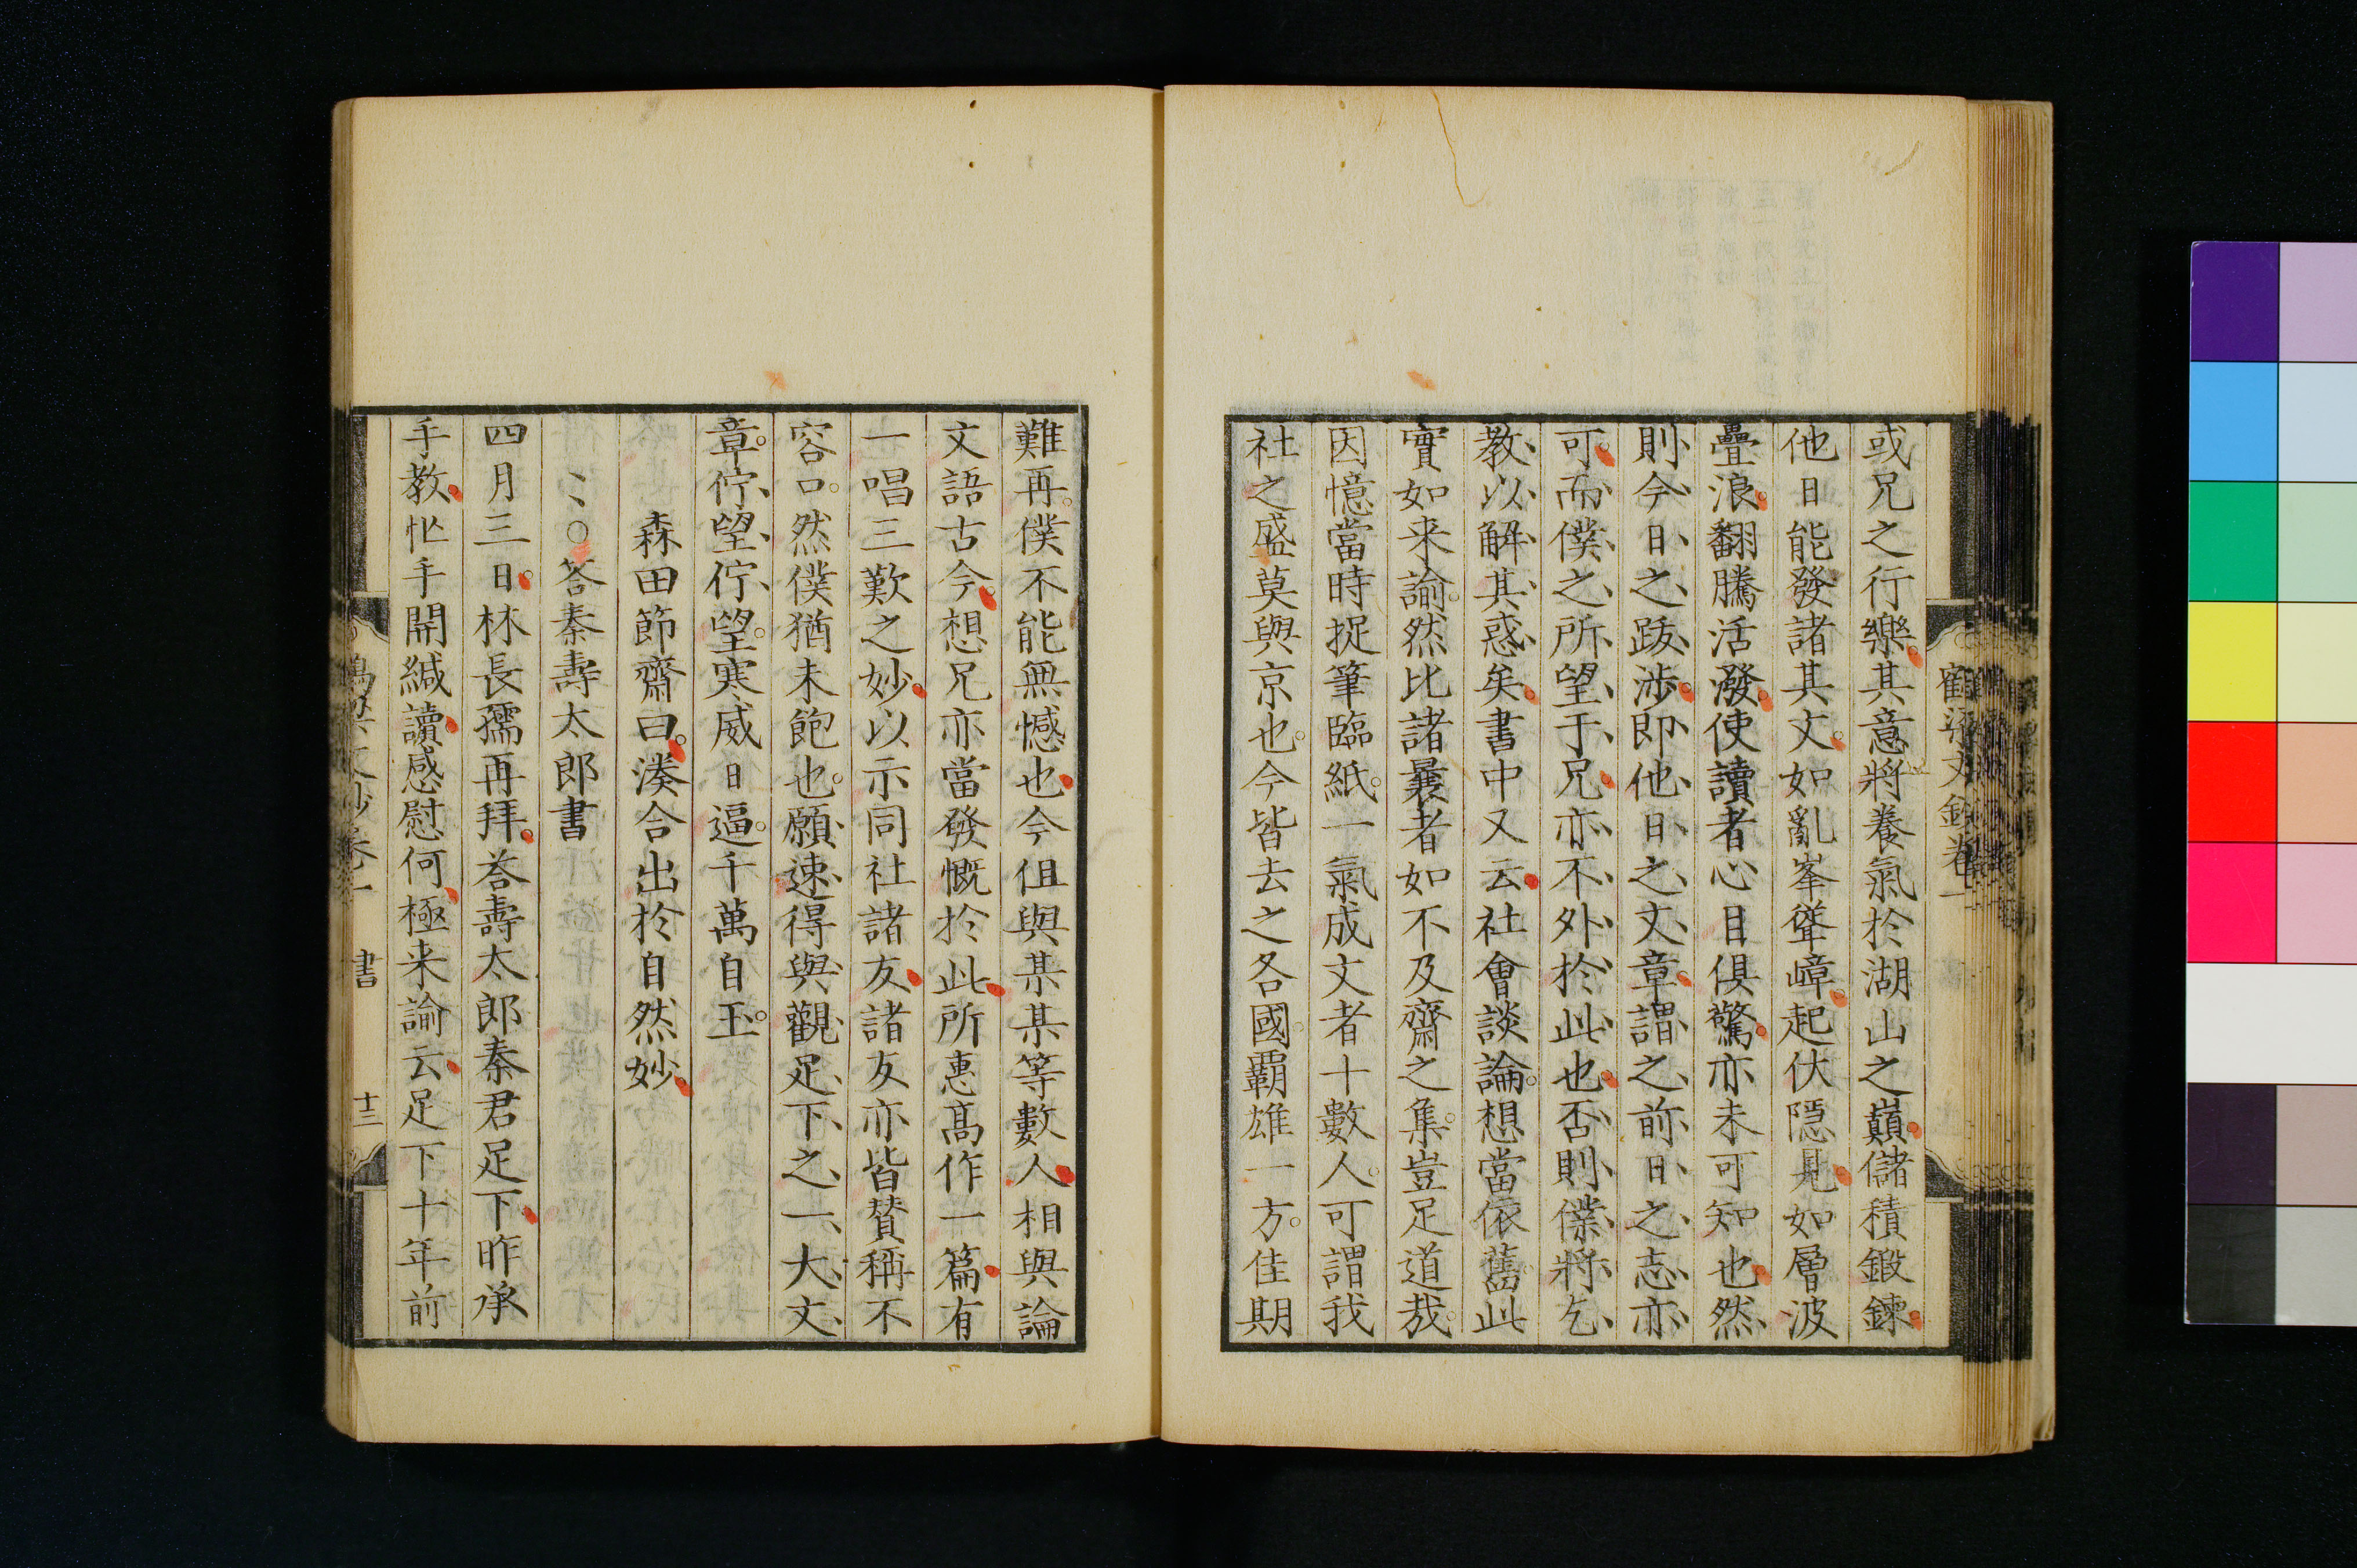 或兄之行樂其意將養氣於湖山之巔儲積鍛鍊
他日能發諸其文如亂峯聳嶂起伏隱見如層波
疊浪翻騰活潑使讀者心目俱驚亦未可知也然
則今日之跋渉即他日之文章謂之前日之志亦
可而僕之所望于兄亦不外於此也否則僕將乞
教以解其惑矣書中又云社會談論想當依舊此
實如来諭然比諸曩者如不及齋之集豈足道哉
因憶當時捉筆臨紙一氣成文者十數人可謂我
社之盛莫與京也今皆去之各國覇雄一方佳期
難再僕不能無憾也今但與某某等數人相與論
文語古今想兄亦當發慨於此所惠髙作一篇有
一唱三歎之妙以示同社諸友諸友亦皆賛稱不
容口然僕猶未飽也願速得與觀足下之一大文
章佇望佇望寒威日逼千萬自玉
森田節齋曰湊合出於自然妙
○答秦壽太郎書
四月三日林長孺再拜荅壽太郎秦君足下昨承
手教忙手開緘讀感慰何極来諭云足下十年前
書 十三